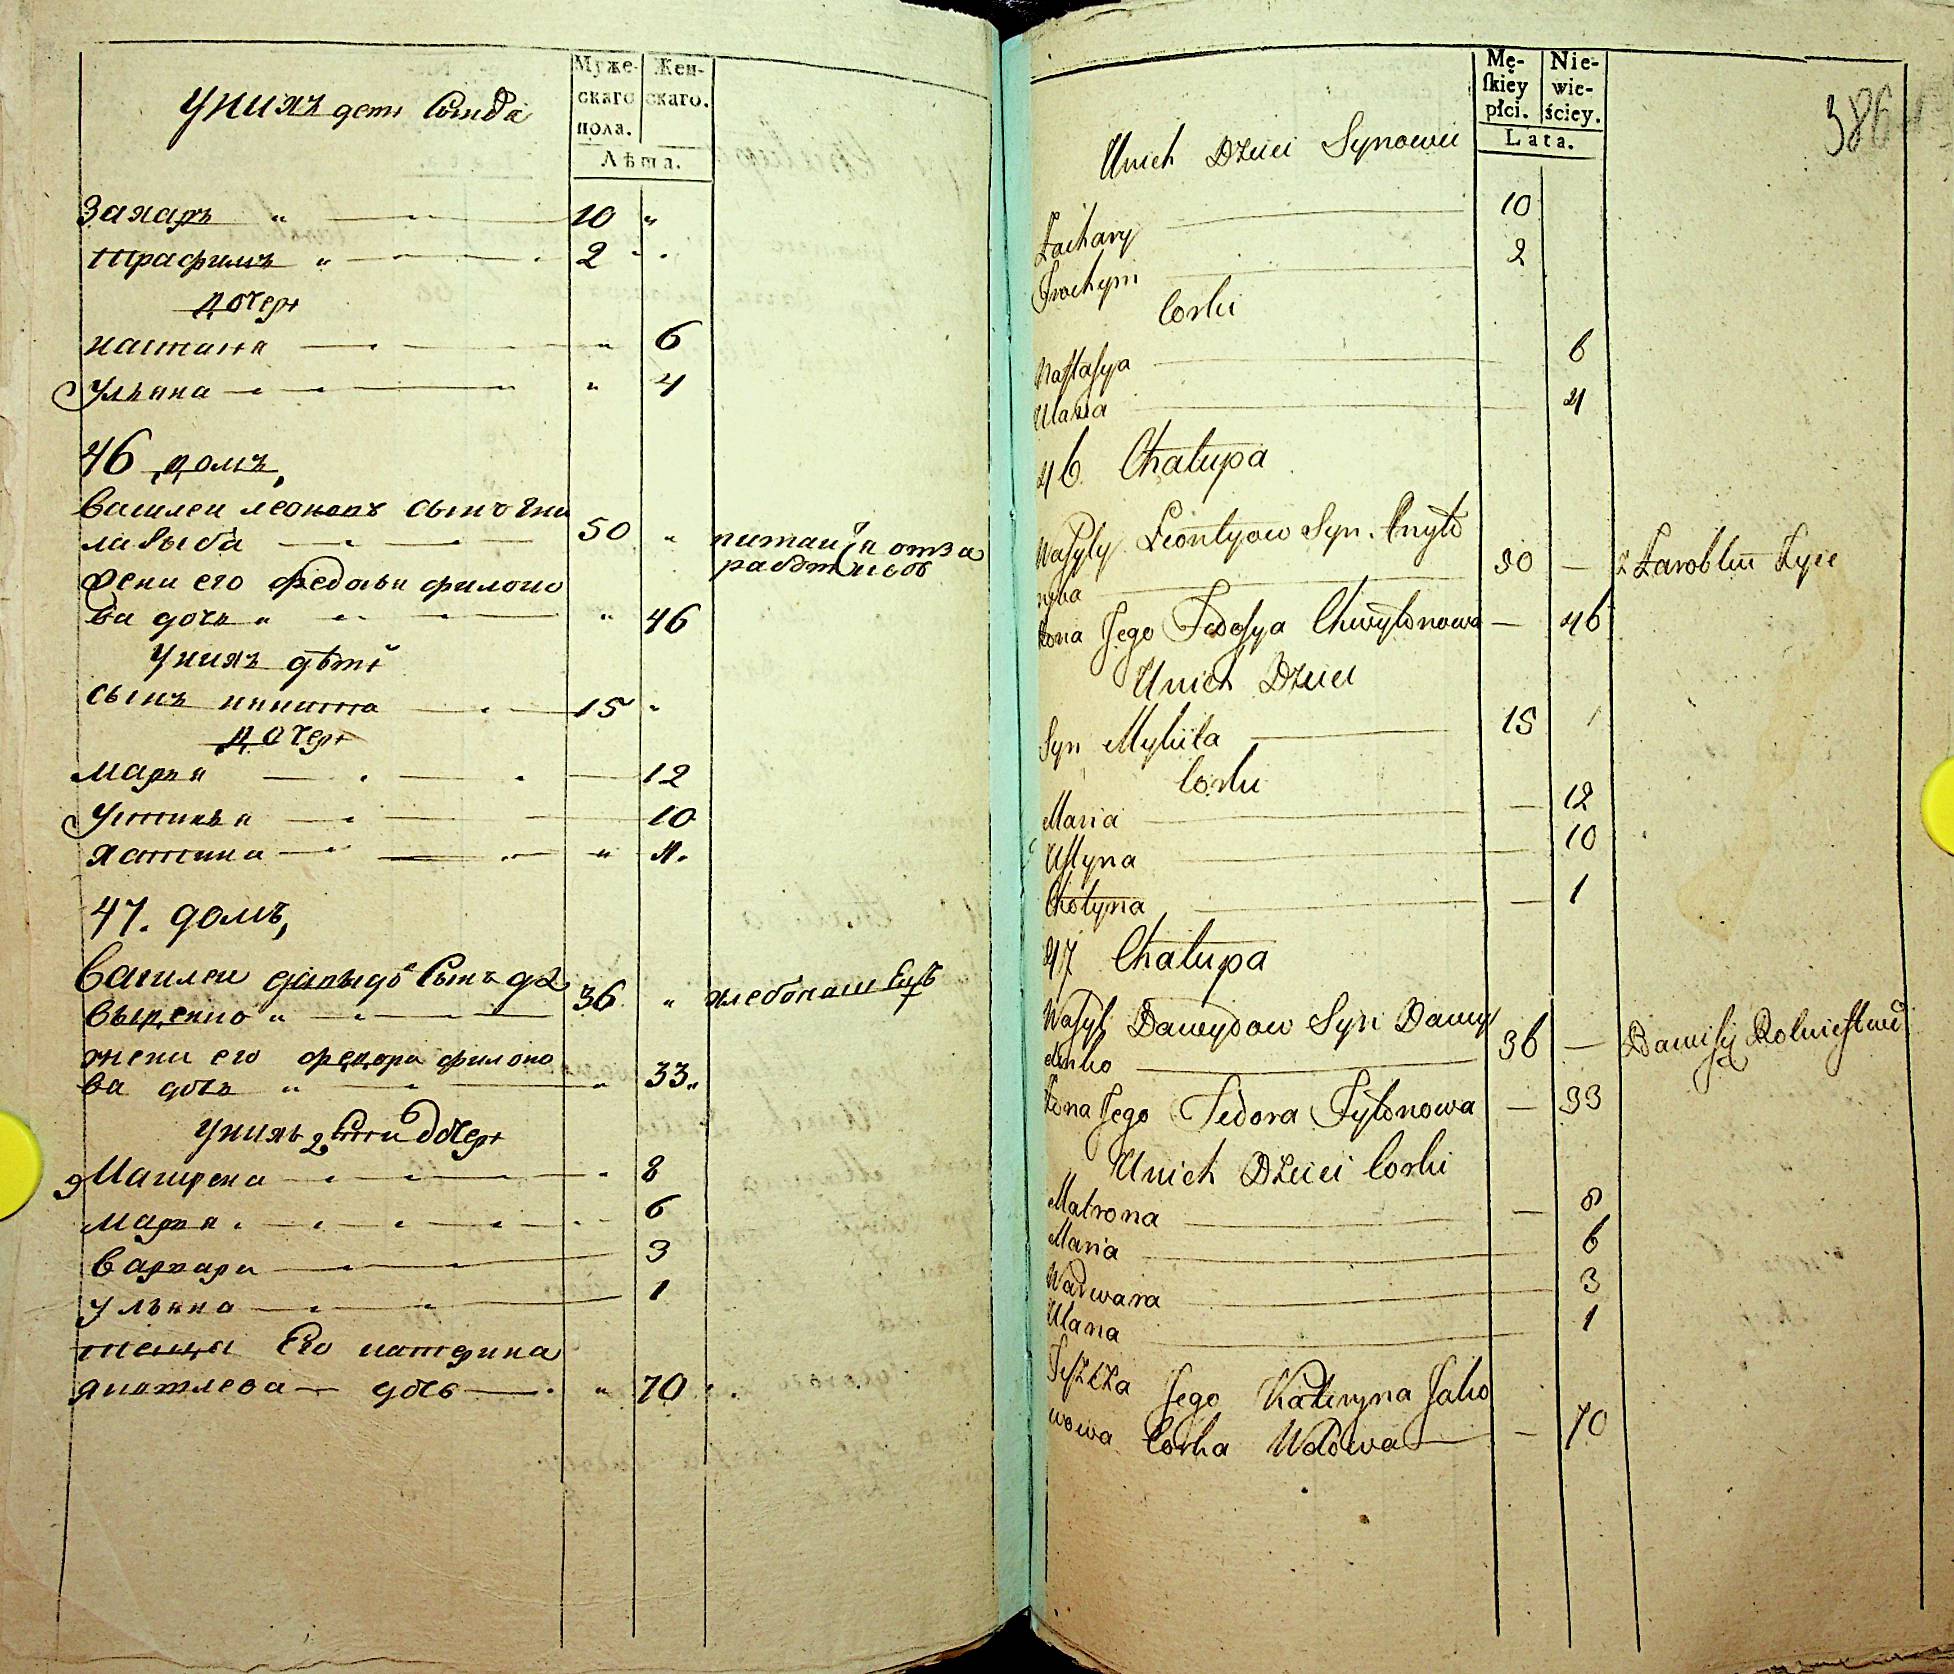 Муже-
скаго
пола.
Жен-
скаго.
Лѣта.
Униxъ дети Сынове
Захаръ " 10 "
Трафимъ " 2
дочери
настасия " 6
Ульяна " 4
46 домъ,
Василеи леоновъ сынъ гни
лаЂыба 50 "
питаица отза
работковъ
Жена его Федосья филоно
ва дочь " " 46
Унихъ дѣти
сынъ никита 15 "
дочери
мария 12
Устинья 10
хатина " 1.
47. домъ,
Василеи давыдо Сынъ да
выденко " 36 "
хлебопашецъ
жена его федора филоно
ва дочь " " 33"
Унихъ дети дочери
Матрена 8
мария 6
варвара 3
ульяна 1
теща Его катерина
яковлева дочь " 70
Mę-
ſkiey
płci.
Nie-
wie-
ściey.
Lata.
386
Unich Dzieci Synowie
Zachary 10
Trochym 2
Corki
Naſtaſya 6
Ulana 4
46 Chalupa
Waſyly Leontyow Syn. Gnyło
ryba 50 — z Zarobku Żyie
Żona Jego Fedoſya Chwyłonowa — 46
Unich Dzieci
Syn Mykita 15
Corki
Maria — 12
Uſtyna 10
Chotyna — 1
47 Chalupa
Waſyl Dawydow Syn Dawy
denko 36 — Bawiſię Rolnictwem
Żona Jego Fedora Fyłonowa — 33
Unich Dzieci Corki
Matrona — 8
Maria 6
Warwara 3
Ulana 1
Teſzcza Jego Kateryna Jako
wowa Corka Wdowa — 70